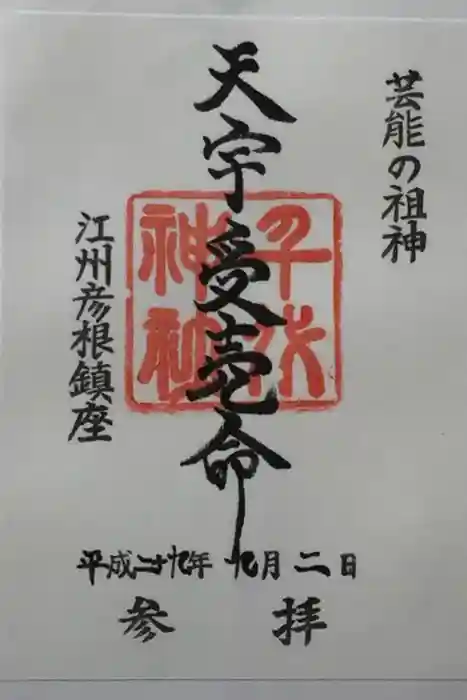 芸能の祖神
天宇受売命
千代
神社
江州彦根鎮座
平成二十九年 九月 二日
参拝